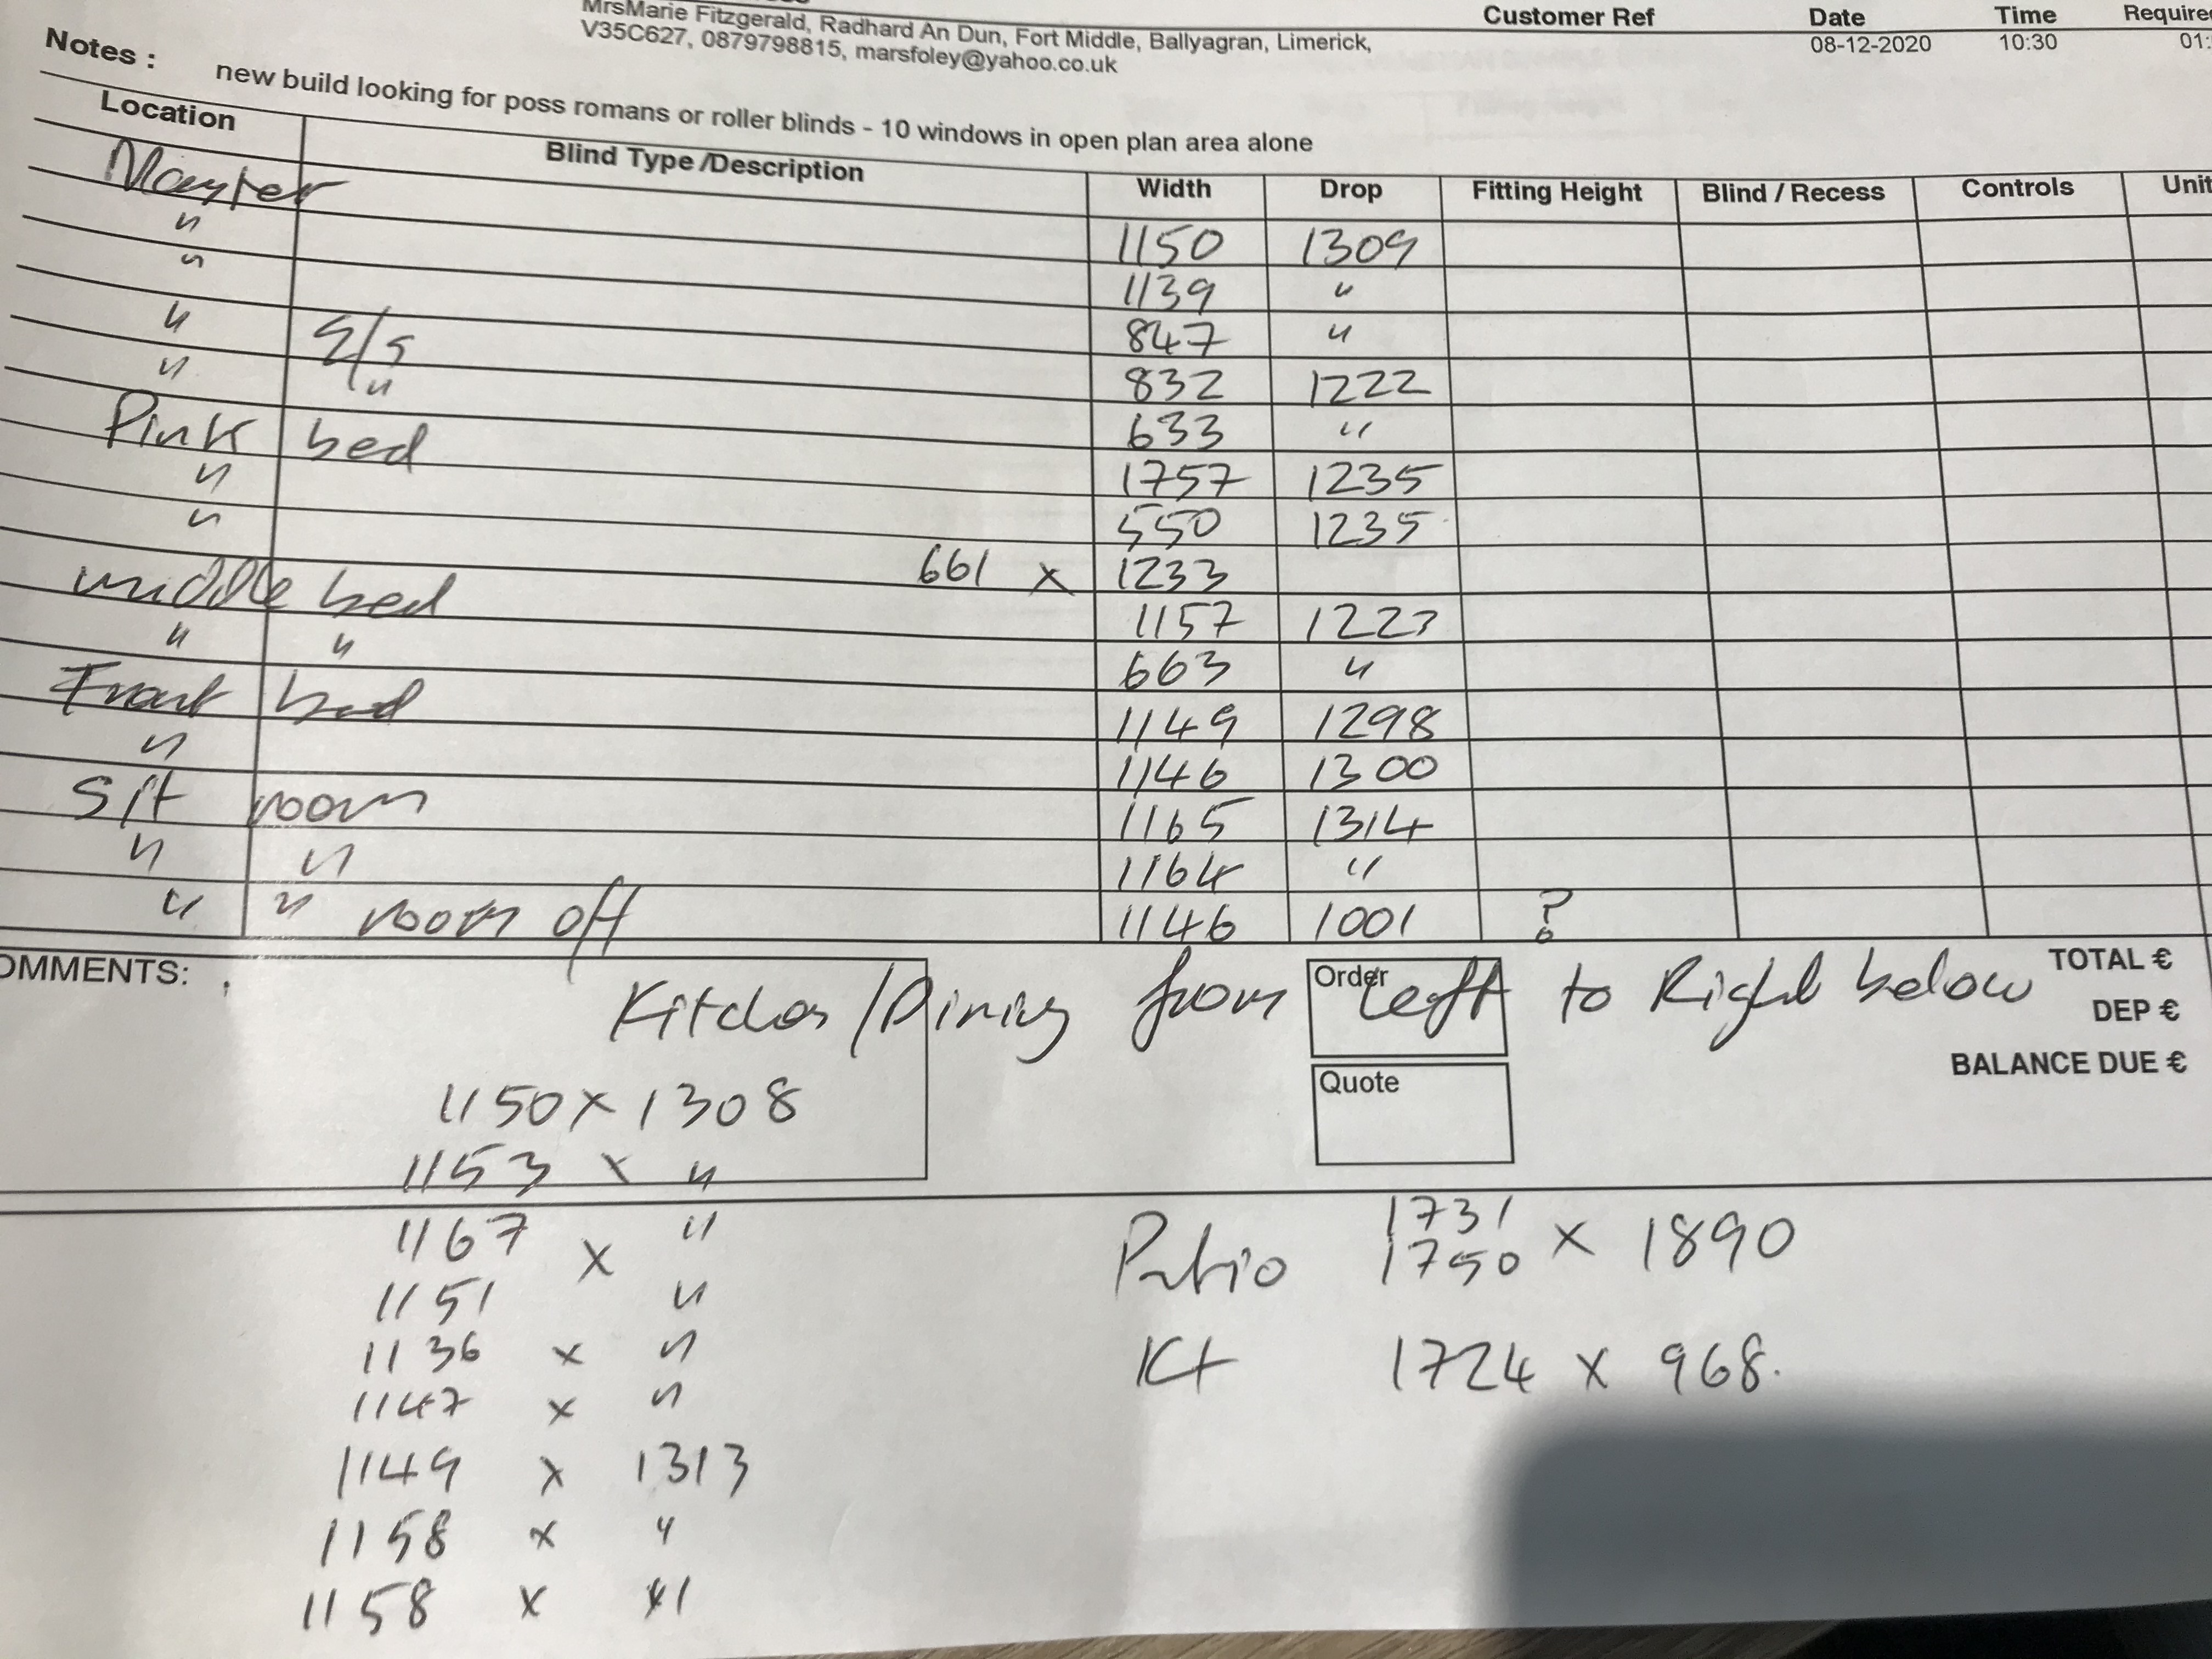 MrsMarie Fitzgerald, Radhard An Dun, Fort Middle, Ballyagran, Limerick,
V35C627, 0879798815, marsfoley@yahoo.co.uk
Customer Ref Date Time
08-12-2020 10:30 01:
Notes : new build looking for poss romans or roller blinds - 10 windows in open plan area alone
Location Blind Type /Description Width Drop Fitting Height Blind / Recess Controls Unit
Master 1150 1309
" 1139 "
" 847 "
" S/s 832 1222
" " 633 "
Pink bed 1757 1235
" 550 1235
" 661 x 1233
middle bed 1157 1223
" " 663 "
Front bed 1149 1298
" 1146 1300
Sit room 1165 1314
" " 1164 "
" " room off 1146 1001 ?
OMMENTS:
Kitchen/Dining from left to Right below
Order
Quote
TOTAL €
DEP €
BALANCE DUE €
1150 x 1308
1153 x "
1167 x "
1151 "
1136 x "
1147 x "
1149 x 1313
1158 x "
1158 x "
Patio 1731
1750 x 1890
Kt 1724 x 968.